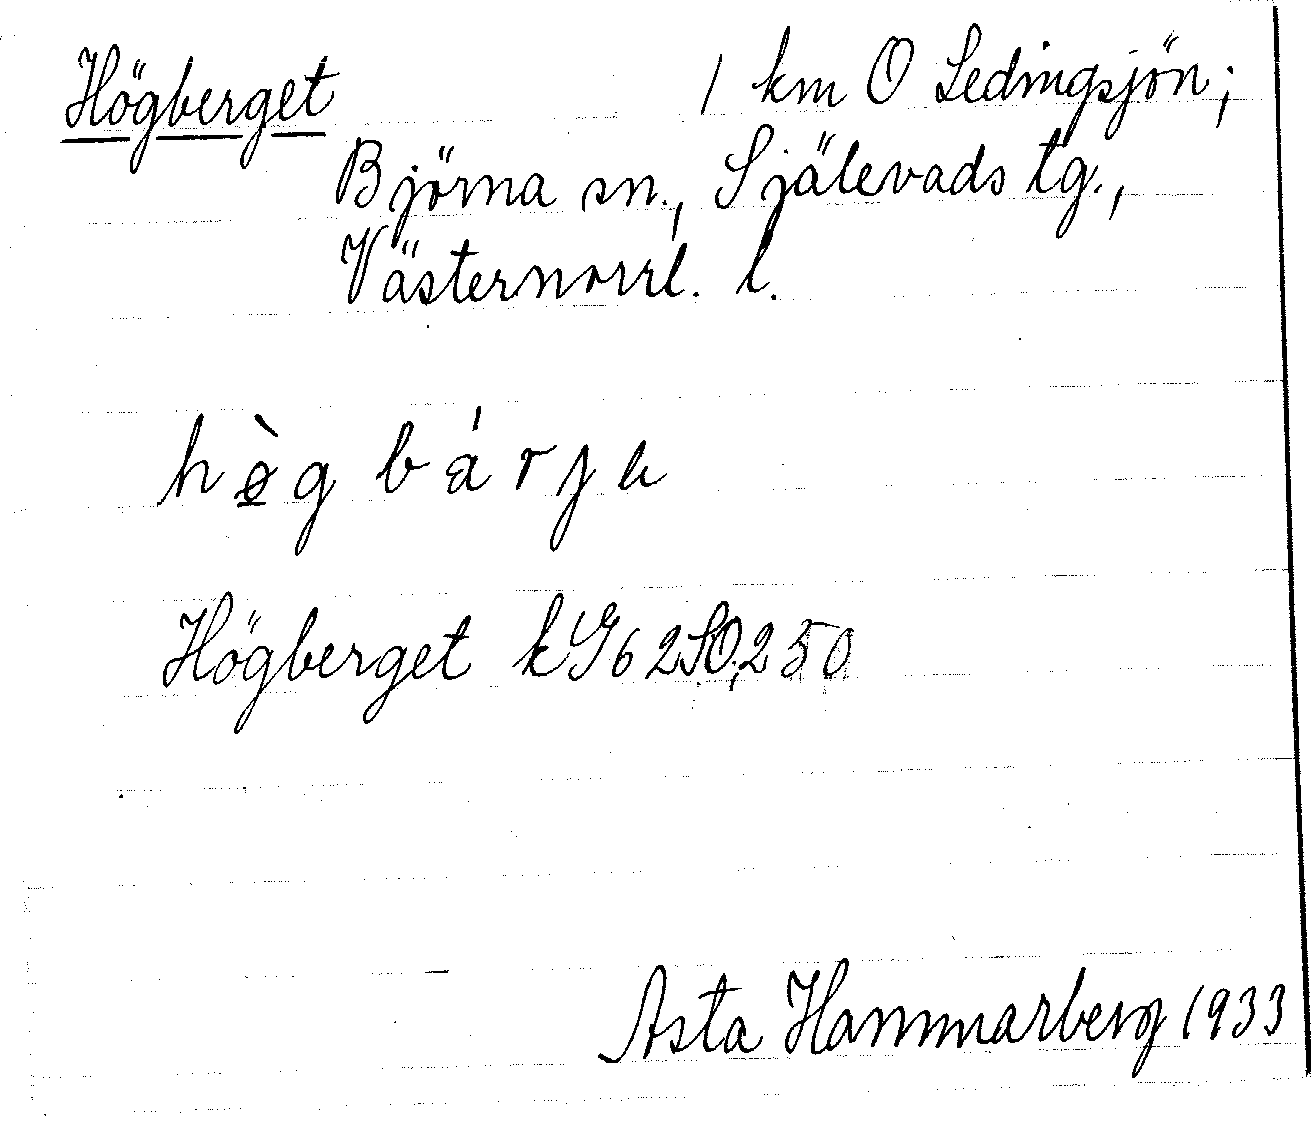 Högberget 1 km O Ledingsjön;
Björna sn., Själevads tg.,
Västernorrl. l.
hø̀gbárju
Högberget kG62SO,250
Asta Hammarberg 1933